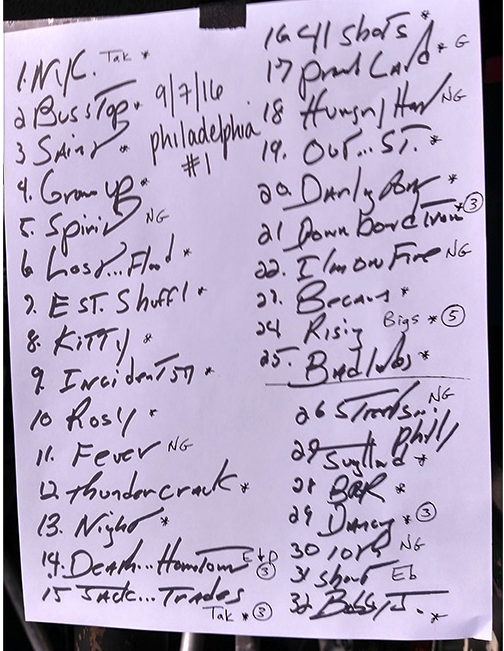 1. NYC. Tak *
2 Bus STop *
3 Spirit *
4. Grow up *
5. Spirit NG
6 Lost...Flood *
7. E ST. Shuffl *
8. KITTY *
9. Incident 57 *
10 Rosy *
11. Fever NG
12. Thundercrack *
13. Night *
14. Death...Hometown E↓D ③
15 Jack...Trades
Tak * ③
9/7/16
philadelphia
#1
16 41 Shots *
17 * G
18 Hungry Hart NG
19. Out...ST. *
20. *
21 Down bound Train * ③
22. I'm on Fire NG
23. Becaus *
24 Rising Bigs * ⑤
25. Badlads *
26 Streets... NG
Philly
27 *
28 BTR *
29 Dancing * ③
30 10th NG
31 Shout Eb
32 Bobby J. *